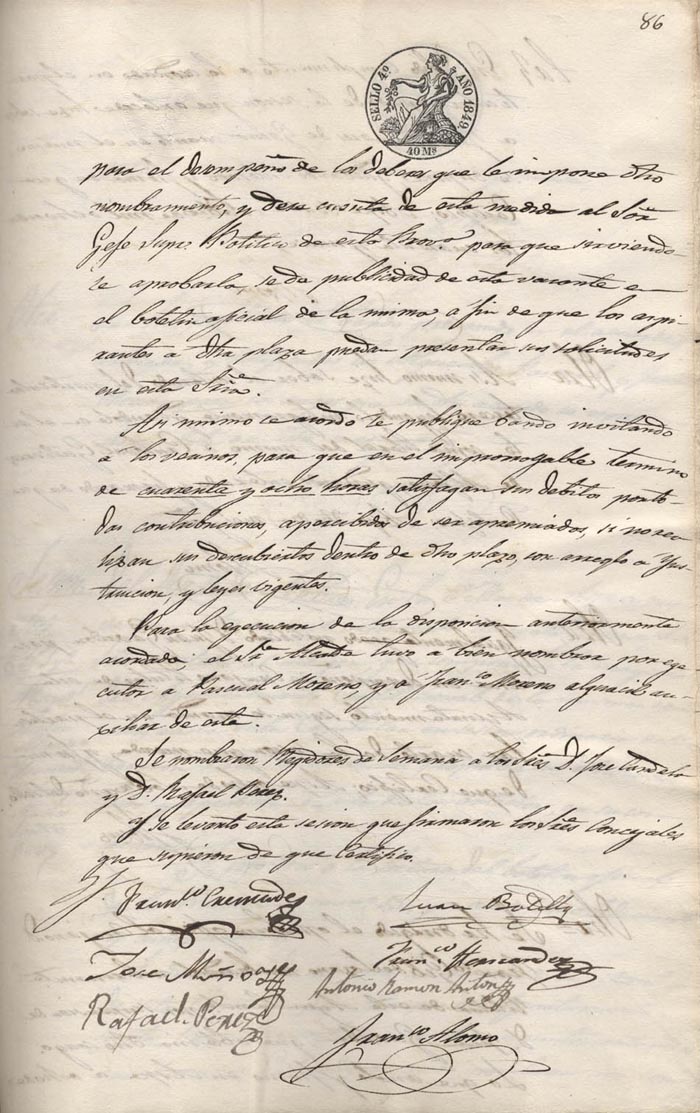 86
SELLO 4º AÑO 1849.
40 Ms
para el desempeño de los deberes que le impone dho
nombramiento, y dese cuenta de esta medida al Sor
Gefe Supr Politico de esta Provª para que sirviendo-
se aprobarla, se da publicidad de esta vacante en
el boletin oficial de la misma, a fin de que los aspi
rantes a dha plaza puedan presentar sus solicitudes
en esta Sriª.
Asi mismo se acordo se publique bando invitando
a los vecinos, para que en el improrrogable termino
de cuarenta y ocho horas satisfagan sus debitos por to-
das contribuciones, apercibidos de ser apremiados, si no rea
lizan sus descubiertos dentro de dho plazo, con arreglo a Yns
truccion, y leyes vigentes.
Para la egecucion de la disposicion anteriormente
acordada, el Sr Alcalde tuvo a bien nombrar por ege
cutor a Pascual Moreno, y a Franco Moreno alguacil au-
xiliar de esta.
Se nombraron Regidores de Semana a los Sres D. Jose Candela
y D. Rafael Perez.
Y se levanto esta sesion que firmaron los Sres Concejales
que supieron de que Certifico.
Franco Cremades
Juan Botella
Jose Muñoz
Franco Hernandez
Antonio Ramon Anton
Rafael Perez
Franco Alonso